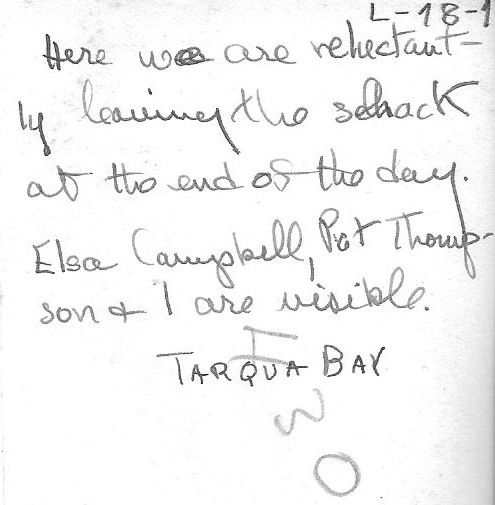 L-18-1
Here we are reluctant-
ly leaving the shack
at the end of the day.
Elsa Campbell, Pat Thomp-
son & I are visible.
TARQUA BAY